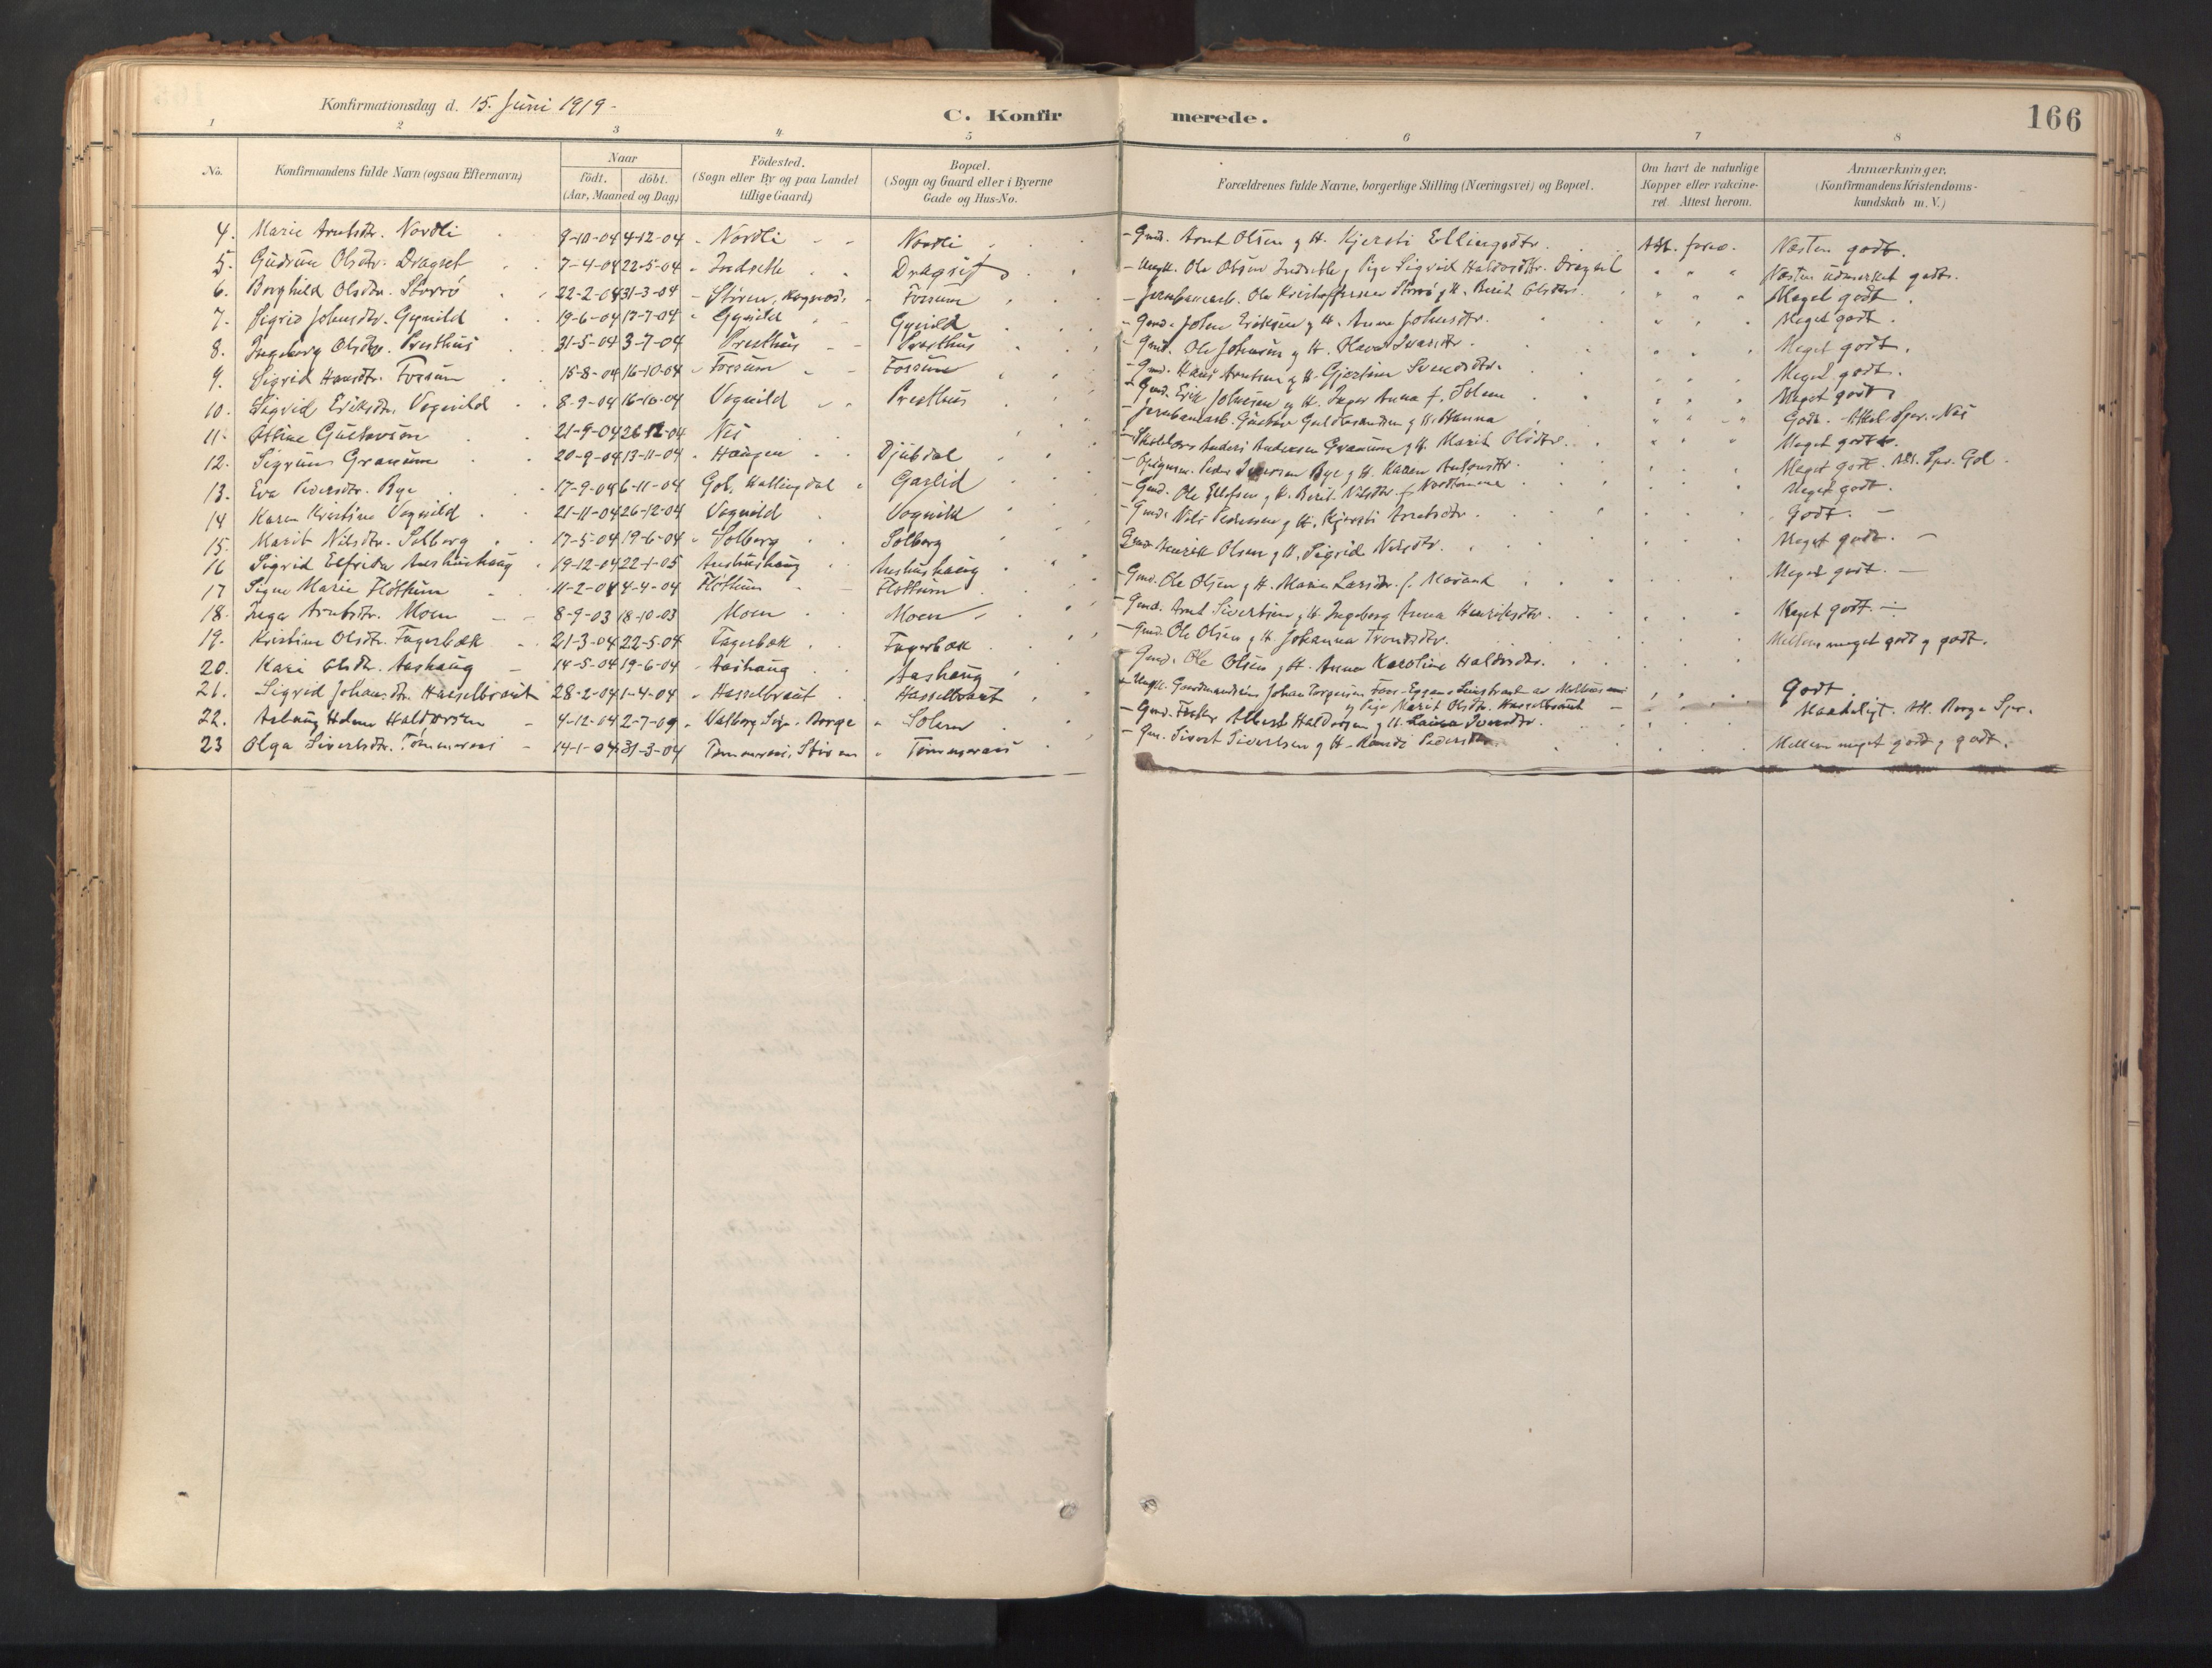 Konfirmationsdag d. 15. Juni 1919.
C. Konfirmerede.
166
1 2 3 4 5 6 7 8
No.
Konfirmandens fulde Navn (ogsaa Efternavn)
Naar
födt. döbt.
(Aar, Maaned og Dag)
Födested.
(Sogn eller By og paa Landet
tillige Gaard)
Bopæl.
(Sogn og Gaard eller i Byerne
Gade og Hus-No.
Forældrenes fulde Navne, borgerlige Stilling (Næringsvei) og Bopæl.
Om havt de naturlige
Kopper eller vakcine-
ret. Attest herom.
Anmærkninger.
(Konfirmandens Kristendoms-
kundskab m. V.)
4. Marie Arntsdtr. Nordli 9-10-04 4-12-04 Nordli Nordli Gmd. Arnt Olsen og H. Kjersti Ellingsdtr. Att. forev. Næsten godt.
5. Gudrun Olsdtr. Dragset 7-4-04 22-5-04 Indsethe Dragset Ungk. Ole Olsen Indsethe og Pige Sigrid Haldosdtr. Dragset Næsten udmerket godt.
6. Borghild Olsdtr. Storrö 22-2-04 31-3-04 Stören, Fossum Jernbanearb. Ole Kristoffersen Storrö og H. Berit Olsdtr. Meget godt.
7. Sigrid Johnsdtr. Gynild 19-6-04 17-7-04 Gynild Gynild Gmd. John Eriksen og H. Anne Johnsdtr. Meget godt.
8. Ingeborg Olsdtr. Presthus 31-5-04 3-7-04 Presthus Presthus Gmd. Ole Johnsen og H. Olava Ivarsdtr. Meget godt.
9. Sigrid Hansdtr. Fossum 15-8-04 16-10-04 Fossum Fossum Gmd. Hans Arntsen og H. Gjertine Svendsdtr. Meget godt.
10. Sigrid Eriksdtr. Vognild 8-9-04 16-10-04 Vognild Presthus Gmd. Erik Johnsen og H. Inger Anna f. Solem Meget godt
11. Gustavson 21-9-04 26-12-04 Nes Jernbanearb. Gustav og H. Hanna Godt. Attest Spr. Nes
12. Sigrun Granum 20-9-04 13-11-04 Haugen Djubdal Anders Andersen Granum og H. Marit Olsdtr. Meget godt.
13. Eva Pedersdtr. Bye 17-9-04 6-11-04 Gol, Hallingdal Garlid Peder Iversen Bye og H. Karen Antonsdtr. Meget godt. Att. Spr. Gol.
14 Karen Kristine Vognild 21-11-04 26-12-04 Vognild Vognild Gmd. Ole Ellefsen og H. Berit Nilsdtr. f. Meget godt.
15. Marit Nilsdtr. Solberg 17-5-04 19-6-04 Solberg Solberg Gmd. Nils Pedersen og H. Kjersti Arntsdtr. Godt. —
16 Sigrid Elfrida Aushushaug 19-12-04 22-1-05 Aushushaug Aushushaug Gmd. Henrik Olsen og H. Sigrid Nilsdtr. Meget godt. —
17 Signe Marie Flöttum 11-2-04 4-4-04 Flöttum Flöttum Gmd. Ole Olsen og H. Marie Larsdtr. f. Meget godt. —
18. Inga Arntsdtr. Moen 8-9-03 18-10-03 Moen Moen Gmd. Arnt Sivertsen og H. Ingeborg Anna Henriksdtr. Meget godt. —
19. Kristine Olsdtr. Fagerbæk 21-3-04 22-5-04 Fagerbæk Fagerbæk Gmd. Ole Olsen og H. Johanna Trondsdtr. Mellem meget godt og godt.
20. Kari Olsdtr. Aashaug 14-5-04 19-6-04 Aashaug Aashaug Gmd. Ole Olsen og H. Anne Karoline Haldosdtr.
21. Sigrid Johansdtr. Hasselbraut 28-2-04 1-4-04 Hasselbraut Hasselbraut Ungk. Gaardmandssön Johan Torgersen og Pige Marit Olsdtr. Hasselbraut Godt
22. Halvorsen 4-12-04 2-7-09 Valborg Borge Solem Albert Haldorsen og H. Laura Maadeligt. Att. Borge Spr.
23 Olga Sivertsdtr. Tømmeraas 14-1-04 31-3-04 Tømmeraas, Stören Tømmeraas Sivert Sivertsen og H. Randi Pedersdtr. Mellem meget godt og godt.